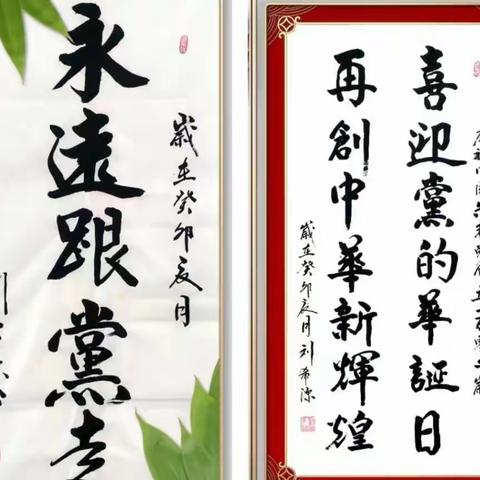 永遠跟黨走
歲在癸卯辰月
喜迎黨的華誕日
再創中華新輝煌
歲在癸卯辰月刘希